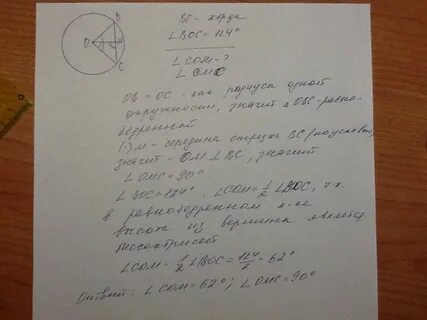 B
O
M
C
BC - хорда
∠BOC = 124°
∠COM - ?
∠OMC
OB = OC - как радиуса одной
окружности, значит △OBC - равно-
бедренный
(·) M - середина отрезка BC (по условию),
значит - OM ⊥ BC, значит
∠OMC = 90°
∠BOC = 124°. ∠COM = 1/2 ∠BOC, т.к.
в равнобедренном
высота из вершины является
биссектрисой
∠COM = 1/2 ∠BOC = 124/2 = 62°
Ответ: ∠COM = 62°; ∠OMC = 90°